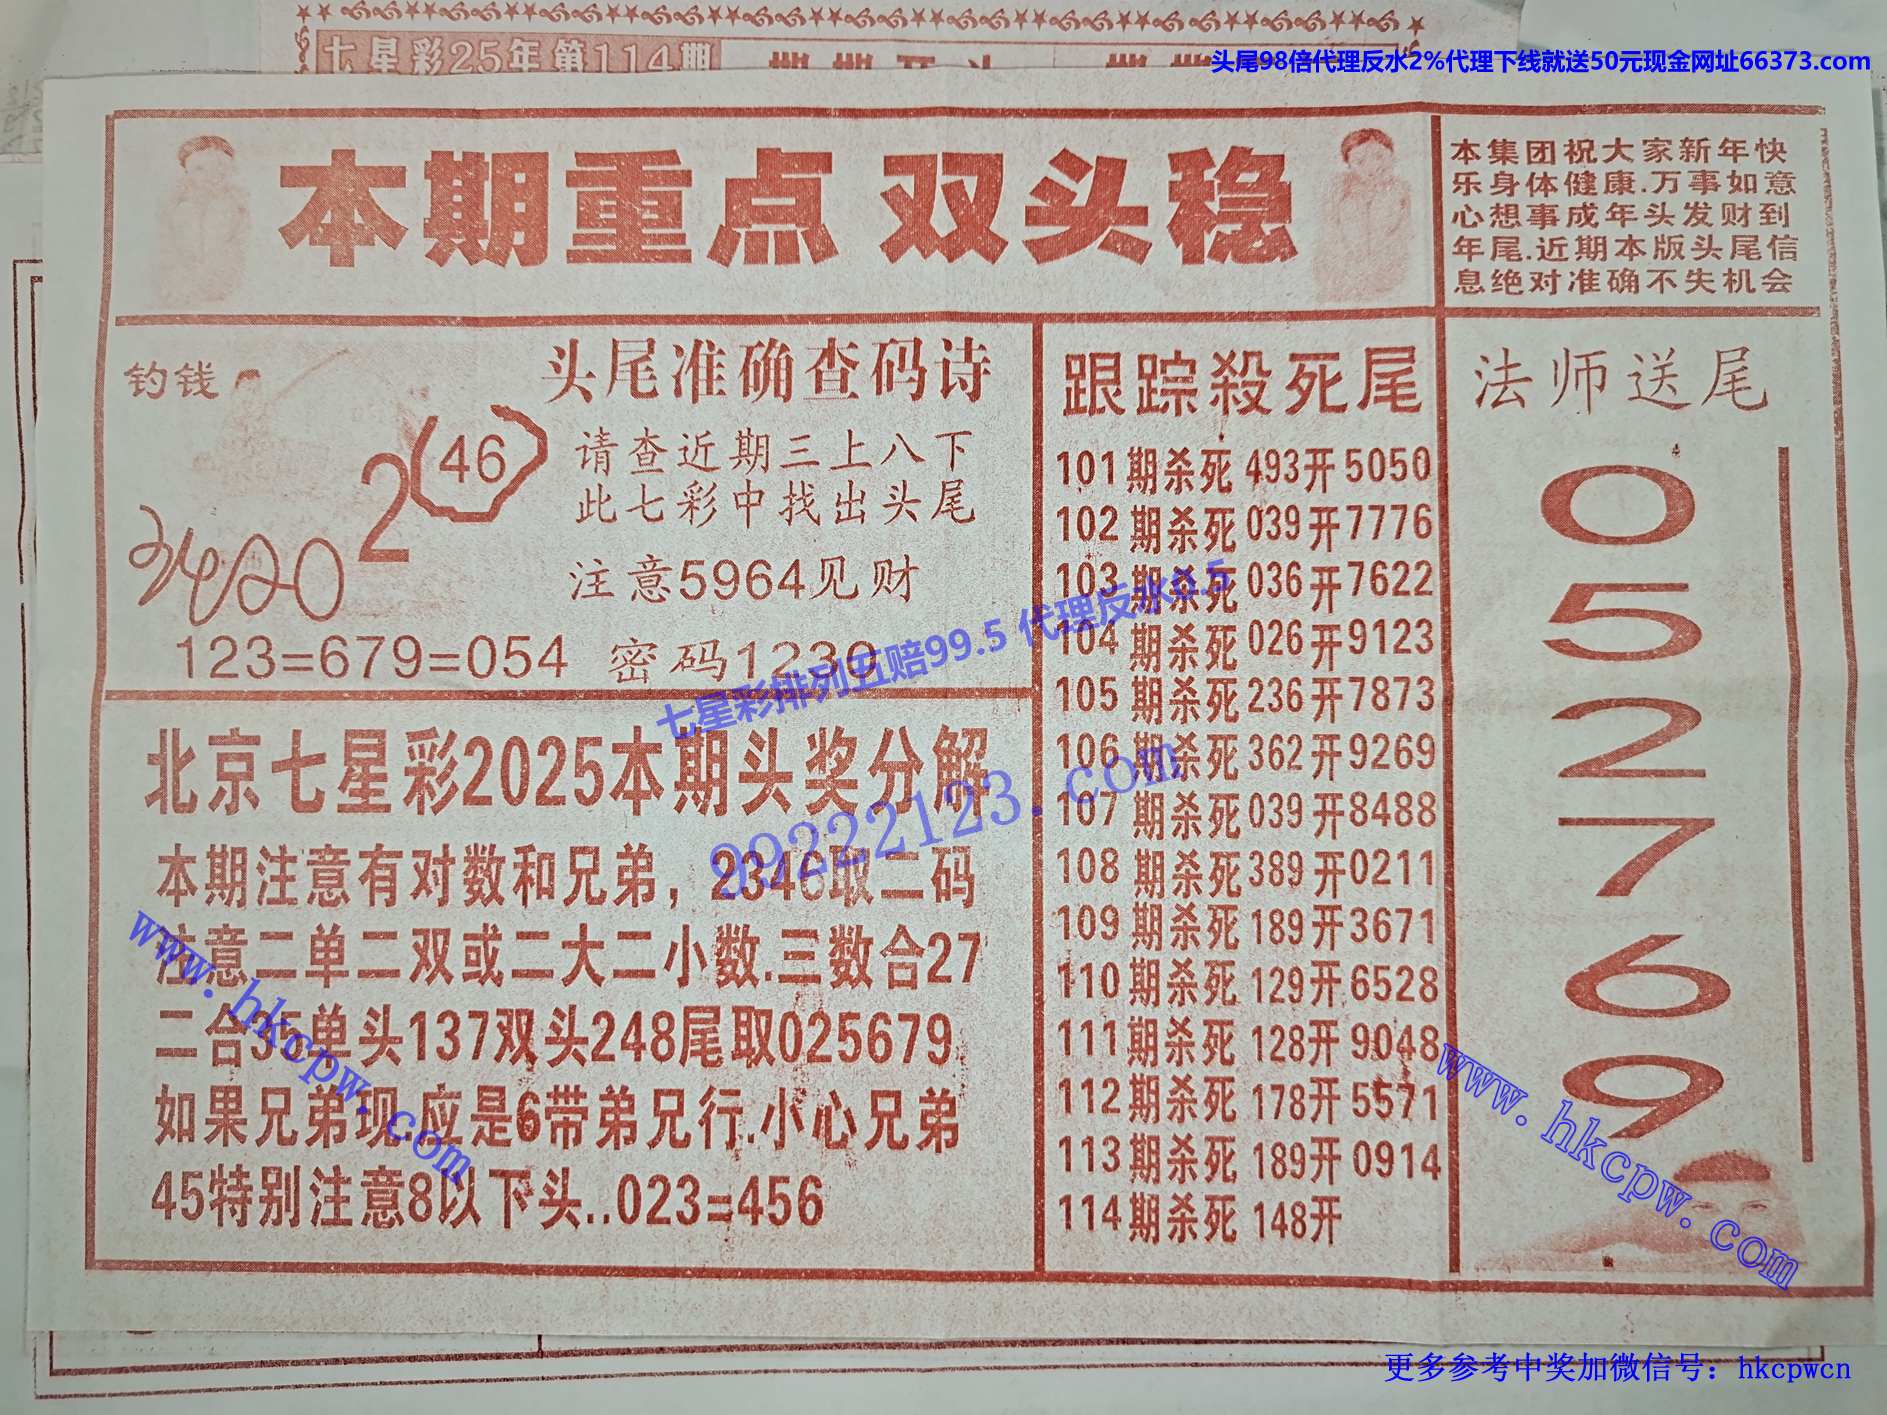 七星彩25年第114期
头尾98倍代理反水2%代理下线就送50元现金网址66373.com
本期重点 双头稳
本集团祝大家新年快
乐身体健康.万事如意
心想事成年头发财到
年尾.近期本版头尾信
息绝对准确不失机会
钓钱
2
(46)
2420
头尾准确查码诗
请查近期三上八下
此七彩中找出头尾
注意5964见财
123=679=054 密码1230
北京七星彩2025本期头奖分解
本期注意有对数和兄弟，2346取二码
注意二单二双或二大二小数.三数合27
二合35单头137双头248尾取025679
如果兄弟现.应是6带弟兄行.小心兄弟
45特别注意8以下头..023=456
跟踪殺死尾
101期杀死493开5050
102期杀死039开7776
103期杀死036开7622
104期杀死026开9123
105期杀死236开7873
106期杀死362开9269
107期杀死039开8488
108期杀死389开0211
109期杀死189开3671
110期杀死129开6528
111期杀死128开9048
112期杀死178开5571
113期杀死189开0914
114期杀死148开
法师送尾
0
5
2
7
6
9
七星彩排列五赔99.5 代理反水0.5
99222123.com
www.hkcpw.com
www.hkcpw.com
更多参考中奖加微信号：hkcpwcn